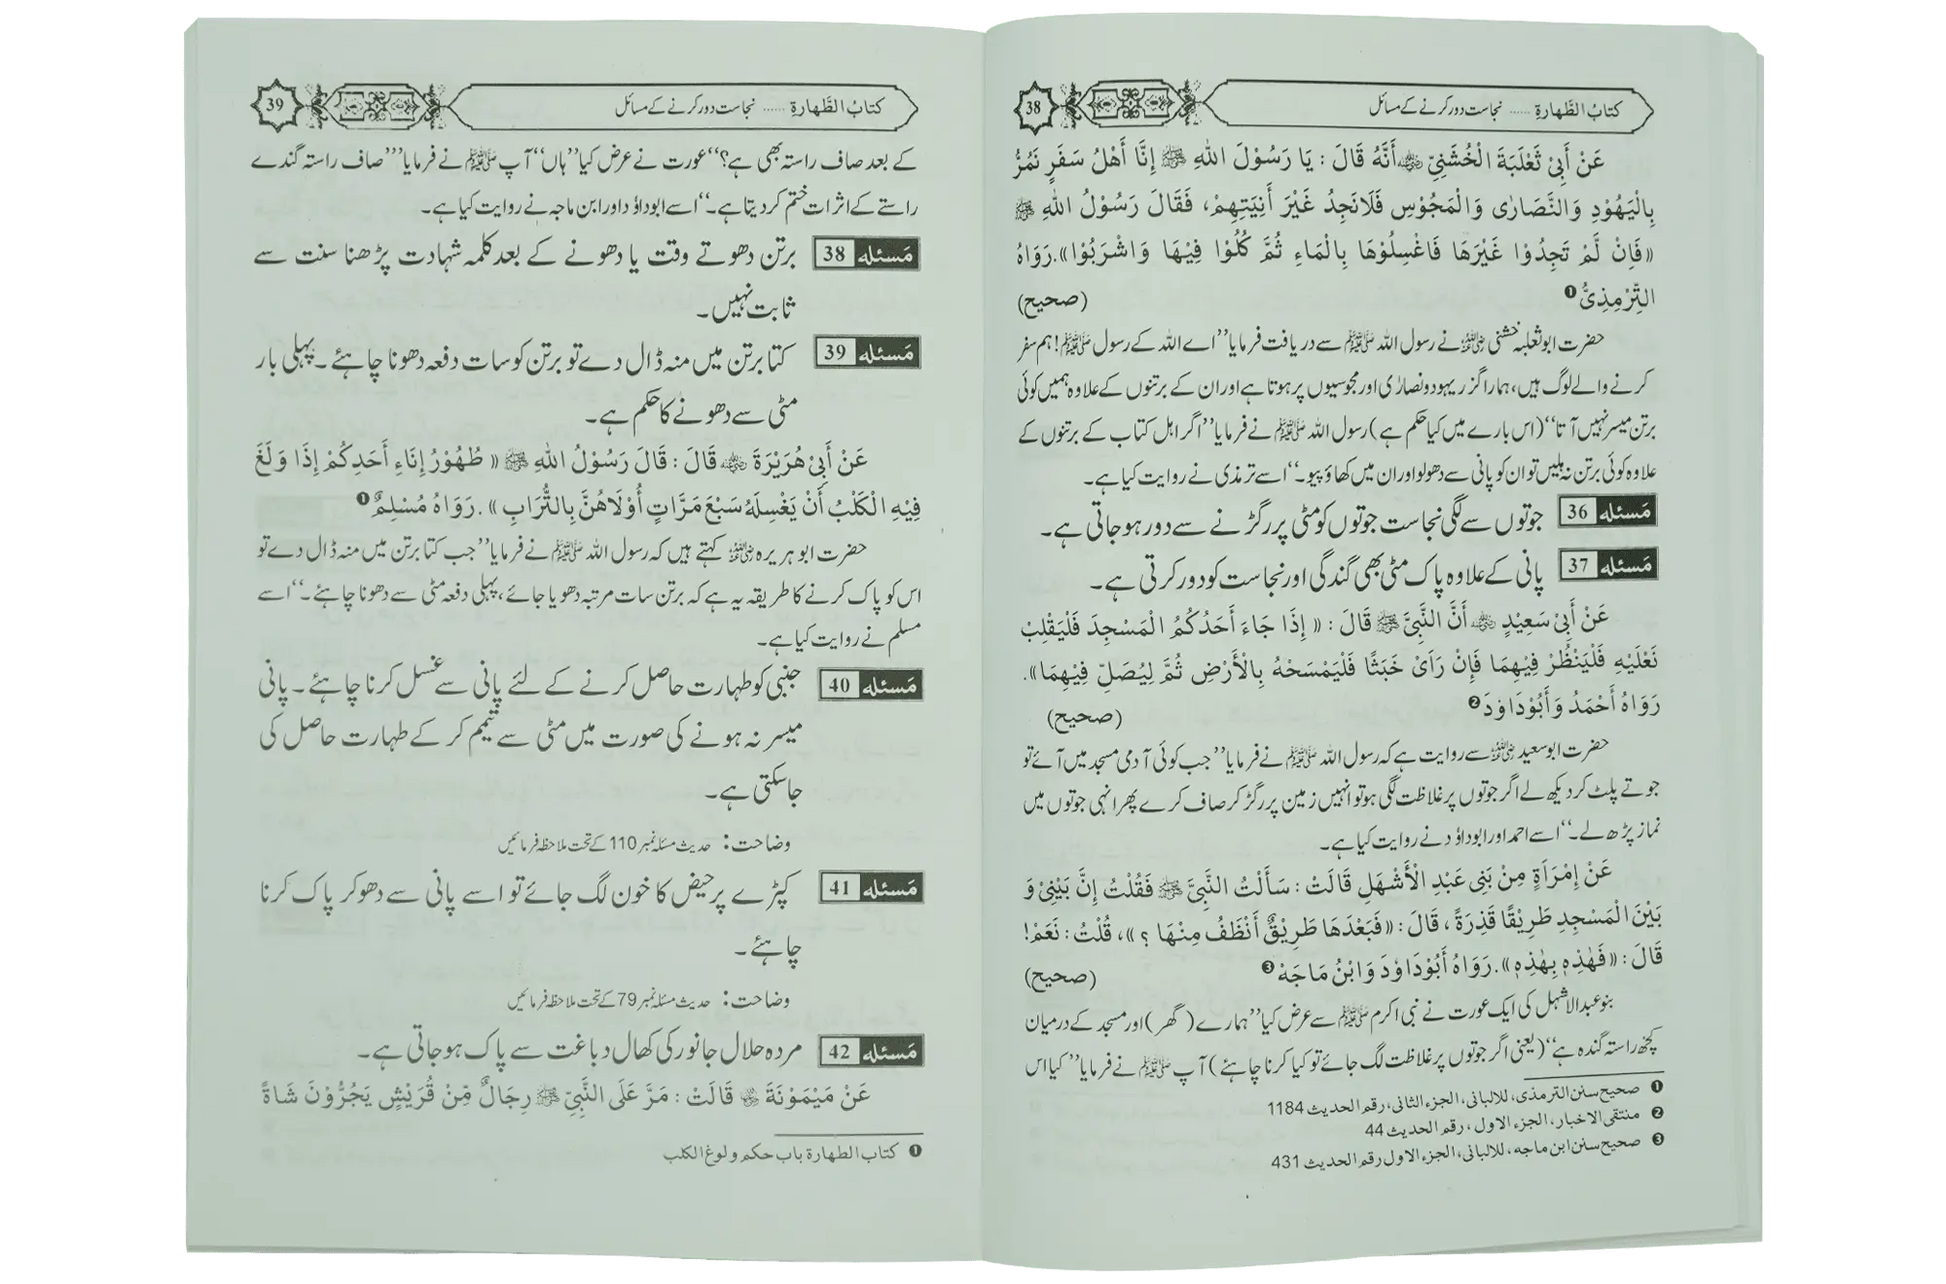 كتابُ الطَّهارةِ ...... نجاست دور کرنے کے مسائل
38
عَنْ أَبِيْ ثَعْلَبَةَ الْخُشَنِيِّ ؓ أَنَّهُ قَالَ : يَا رَسُوْلَ اللهِ ﷺ إِنَّا أَهْلُ سَفَرٍ نَمُرُّ
بِالْيَهُوْدِ وَالنَّصَارٰى وَالْمَجُوْسِ فَلَانَجِدُ غَيْرَ أَنِيَتِهِمْ، فَقَالَ رَسُوْلُ اللهِ ﷺ
((فَإِنْ لَّمْ تَجِدُوْا غَيْرَهَا فَاغْسِلُوْهَا بِالْمَاءِ ثُمَّ كُلُوْا فِيْهَا وَاشْرَبُوْا)). رَوَاهُ
التِّرْمِذِيُّ❶ (صحيح)
حضرت ابوثعلبہ خشنی ؓ نے رسول اللہ ﷺ سے دریافت فرمایا ’’اے اللہ کے رسول ﷺ! ہم سفر
کرنے والے لوگ ہیں، ہمارا گزر یہود و نصارٰی اور مجوسیوں پر ہوتا ہے اور ان کے برتنوں کے علاوہ ہمیں کوئی
برتن میسر نہیں آتا‘‘ (اس بارے میں کیا حکم ہے) رسول اللہ ﷺ نے فرمایا ’’اگر اہل کتاب کے برتنوں کے
علاوہ کوئی برتن نہ ملیں تو ان کو پانی سے دھولو اور ان میں کھاؤ پیو۔‘‘ اسے ترمذی نے روایت کیا ہے۔
مَسئله 36 جوتوں سے لگی نجاست جوتوں کو مٹی پر رگڑنے سے دور ہو جاتی ہے۔
مَسئله 37 پانی کے علاوہ پاک مٹی بھی گندگی اور نجاست کو دور کرتی ہے۔
عَنْ أَبِيْ سَعِيْدٍ ؓ أَنَّ النَّبِيَّ ﷺ قَالَ : (( إِذَا جَاءَ أَحَدُكُمُ الْمَسْجِدَ فَلْيَقْلِبْ
نَعْلَيْهِ فَلْيَنْظُرْ فِيْهِمَا فَإِنْ رَأَىْ خَبَثًا فَلْيَمْسَحْهُ بِالْأَرْضِ ثُمَّ لِيُصَلِّ فِيْهِمَا)).
رَوَاهُ أَحْمَدُ وَأَبُوْدَاوٗدَ❷ (صحيح)
حضرت ابوسعید ؓ سے روایت ہے کہ رسول اللہ ﷺ نے فرمایا ’’جب کوئی آدمی مسجد میں آئے تو
جوتے پلٹ کر دیکھ لے اگر جوتوں پر غلاظت لگی ہو تو انہیں زمین پر رگڑ کر صاف کرے پھر انہی جوتوں میں
نماز پڑھ لے۔‘‘ اسے احمد اور ابوداؤد نے روایت کیا ہے۔
عَنْ إِمْرَأَةٍ مِنْ بَنِي عَبْدِ الْأَشْهَلِ قَالَتْ : سَأَلْتُ النَّبِيَّ ﷺ فَقُلْتُ إِنَّ بَيْنِيْ وَ
بَيْنَ الْمَسْجِدِ طَرِيْقًا قَذِرَةً ، قَالَ : ((فَبَعْدَهَا طَرِيْقٌ أَنْظَفُ مِنْهَا ؟ ))، قُلْتُ : نَعَمْ!
قَالَ : ((فَهٰذِهٖ بِهٰذِهٖ)). رَوَاهُ أَبُوْدَاوٗدَ وَابْنُ مَاجَهْ❸ (صحيح)
بنو عبدالاشہل کی ایک عورت نے نبی اکرم ﷺ سے عرض کیا ’’ہمارے (گھر) اور مسجد کے درمیان
کچھ راستہ گندہ ہے‘‘ (یعنی اگر جوتوں پر غلاظت لگ جائے تو کیا کرنا چاہئے) آپ ﷺ نے فرمایا ’’کیا اس
❶ صحیح سنن الترمذی، للالبانی، الجزء الثانی، رقم الحدیث 1184
❷ منتقی الاخبار، الجزء الاول، رقم الحدیث 44
❸ صحیح سنن ابن ماجه، للالبانی، الجزء الاول رقم الحدیث 431
كتابُ الطَّهارةِ ...... نجاست دور کرنے کے مسائل
39
کے بعد صاف راستہ بھی ہے؟‘‘ عورت نے عرض کیا ’’ہاں‘‘ آپ ﷺ نے فرمایا ’’’صاف راستہ گندے
راستے کے اثرات ختم کر دیتا ہے۔‘‘ اسے ابوداؤد اور ابن ماجہ نے روایت کیا ہے۔
مَسئله 38 برتن دھوتے وقت یا دھونے کے بعد کلمہ شہادت پڑھنا سنت سے
ثابت نہیں۔
مَسئله 39 کتا برتن میں منہ ڈال دے تو برتن کو سات دفعہ دھونا چاہئے۔ پہلی بار
مٹی سے دھونے کا حکم ہے۔
عَنْ أَبِيْ هُرَيْرَةَ ؓ قَالَ : قَالَ رَسُوْلُ اللهِ ﷺ (( طُهُوْرُ إِنَاءِ أَحَدِكُمْ إِذَا وَلَغَ
فِيْهِ الْكَلْبُ أَنْ يَغْسِلَهُ سَبْعَ مَرَّاتٍ أُوْلَاهُنَّ بِالتُّرَابِ )) . رَوَاهُ مُسْلِمٌ❶
حضرت ابوہریرہ ؓ کہتے ہیں کہ رسول اللہ ﷺ نے فرمایا ’’جب کتا برتن میں منہ ڈال دے تو
اس کو پاک کرنے کا طریقہ یہ ہے کہ برتن سات مرتبہ دھویا جائے، پہلی دفعہ مٹی سے دھونا چاہئے۔‘‘ اسے
مسلم نے روایت کیا ہے۔
مَسئله 40 جنبی کو طہارت حاصل کرنے کے لئے پانی سے غسل کرنا چاہئے۔ پانی
میسر نہ ہونے کی صورت میں مٹی سے تیمم کر کے طہارت حاصل کی
جاسکتی ہے۔
وضاحت: حدیث مسئلہ نمبر 110 کے تحت ملاحظہ فرمائیں
مَسئله 41 کپڑے پر حیض کا خون لگ جائے تو اسے پانی سے دھو کر پاک کرنا
چاہئے۔
وضاحت: حدیث مسئلہ نمبر 79 کے تحت ملاحظہ فرمائیں
مَسئله 42 مردہ حلال جانور کی کھال دباغت سے پاک ہو جاتی ہے۔
عَنْ مَيْمُوْنَةَ ؓ قَالَتْ : مَرَّ عَلَى النَّبِيِّ ﷺ رِجَالٌ مِّنْ قُرَيْشٍ يَجُرُّوْنَ شَاةً
❶ كتاب الطهارة باب حكم ولوغ الكلب